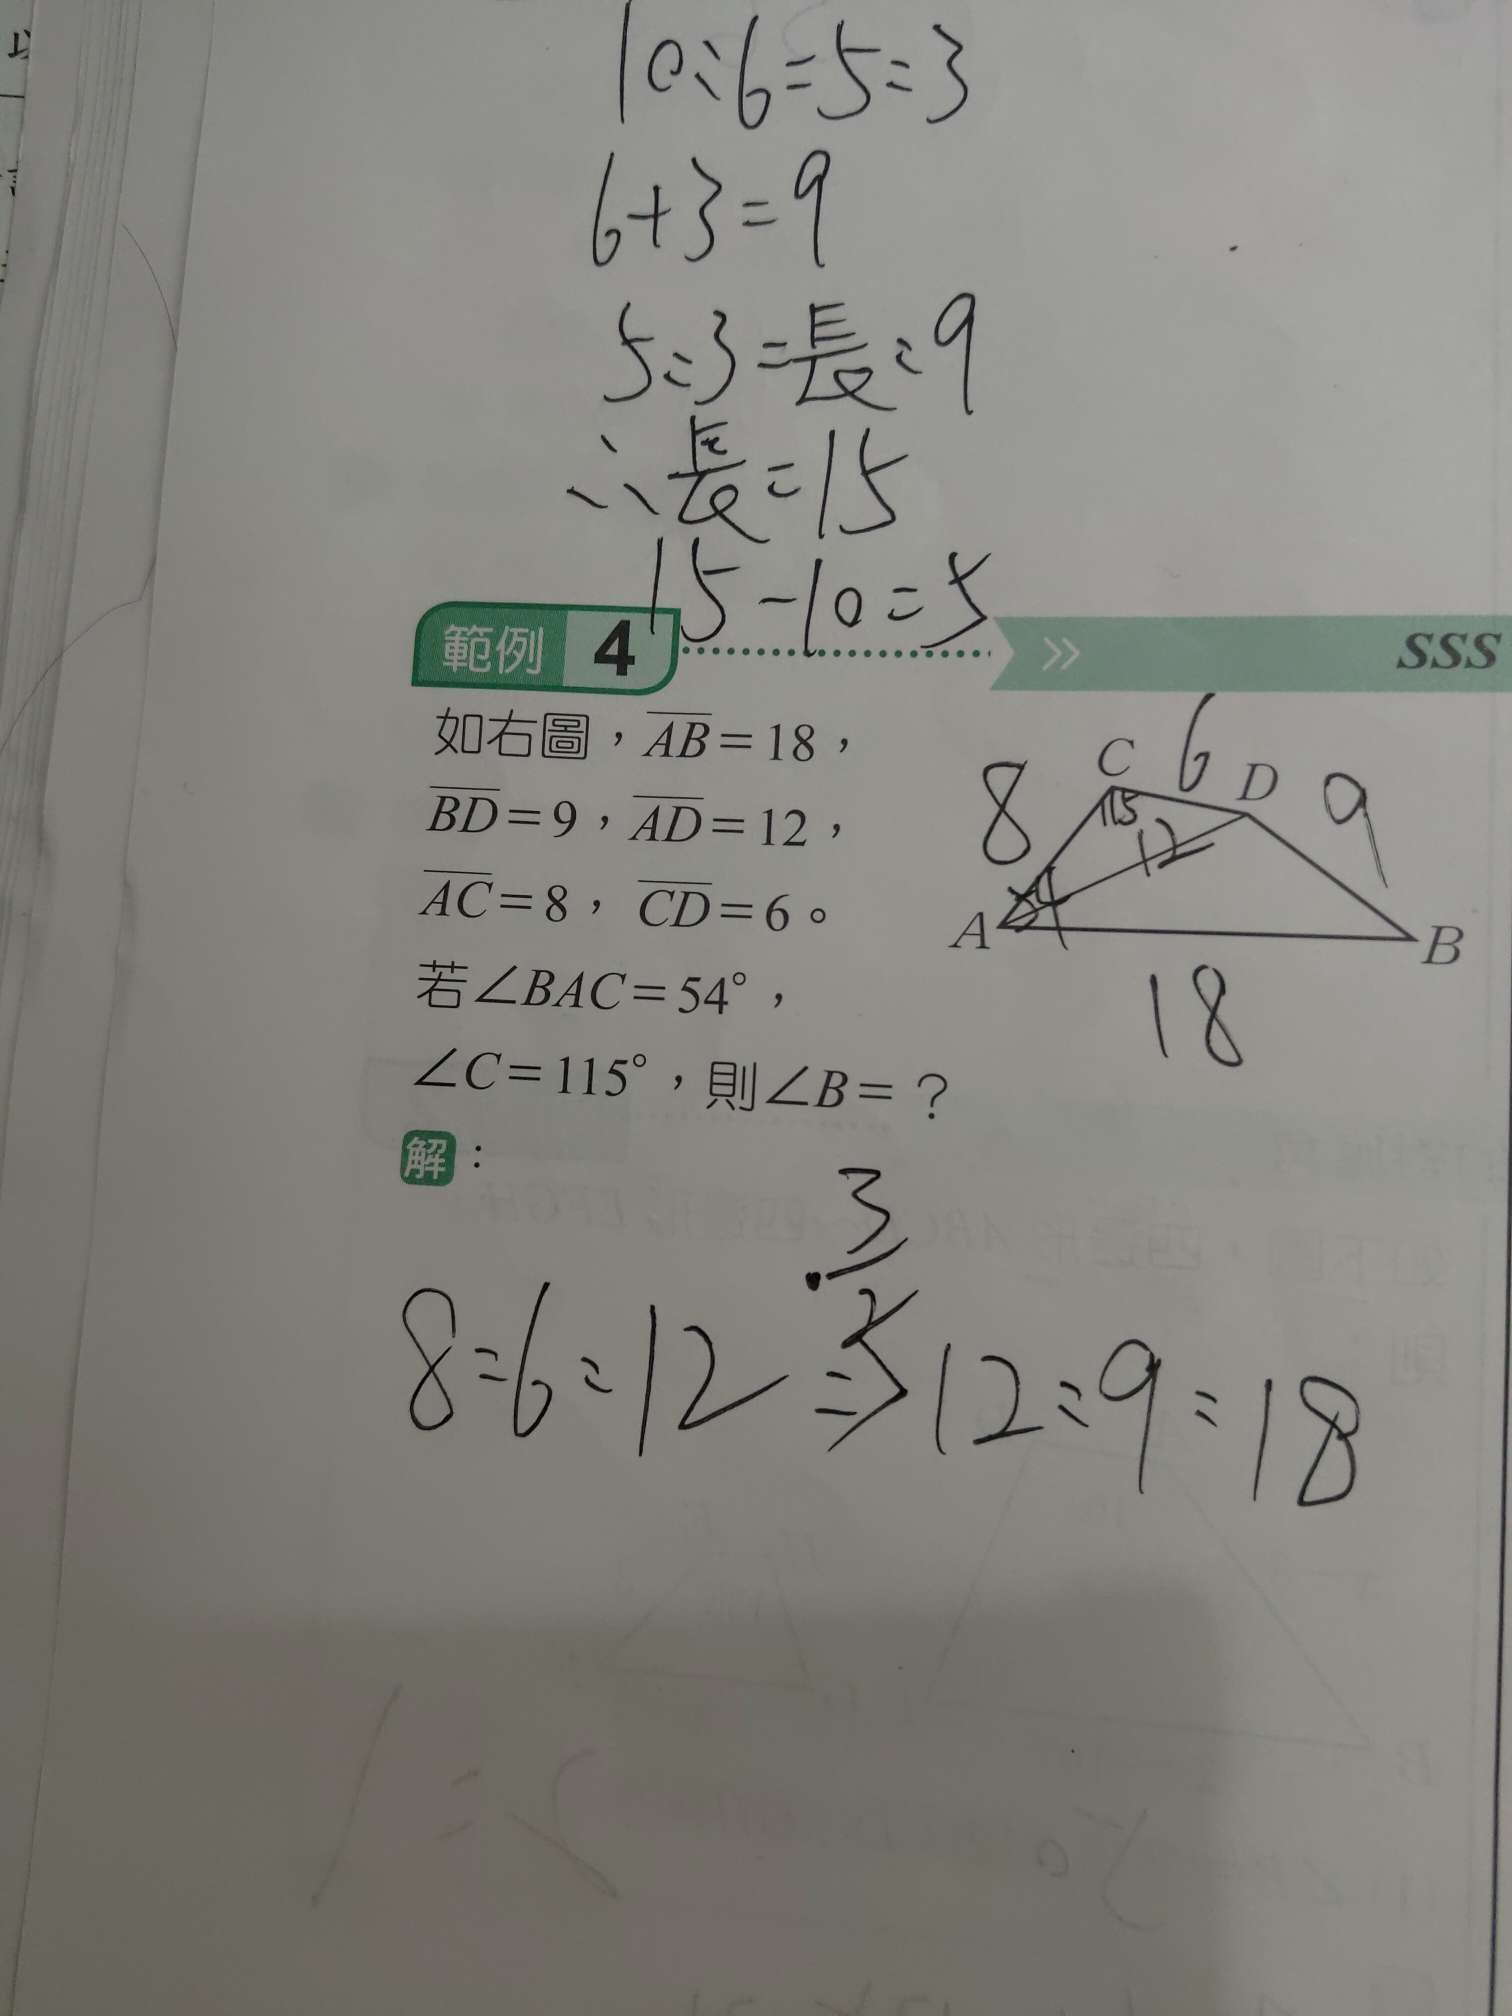 10:6=5:3
6+3=9
5:3=長:9
∴長=15
15-10=5
範例 4 SSS
如右圖，AB=18，
BD=9，AD=12，
AC=8，CD=6。
若∠BAC=54°，
∠C=115°，則∠B=？
C 6 D
8 115 12 9
A 54 B
18
解：
3
2
8:6:12 = 12:9:18